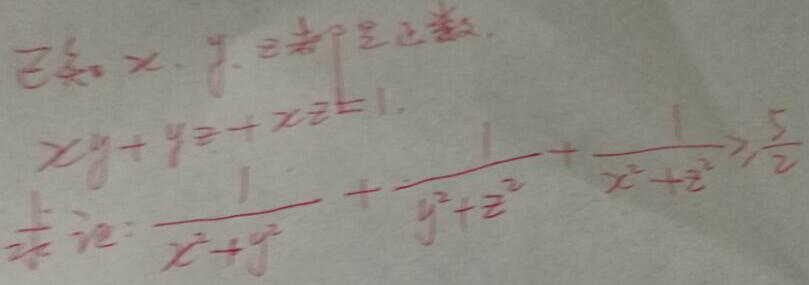 已知 x、y、z 都是正数.
xy+yz+xz=1.
求证: 1/(x²+y²) + 1/(y²+z²) + 1/(x²+z²) ≥ 5/2